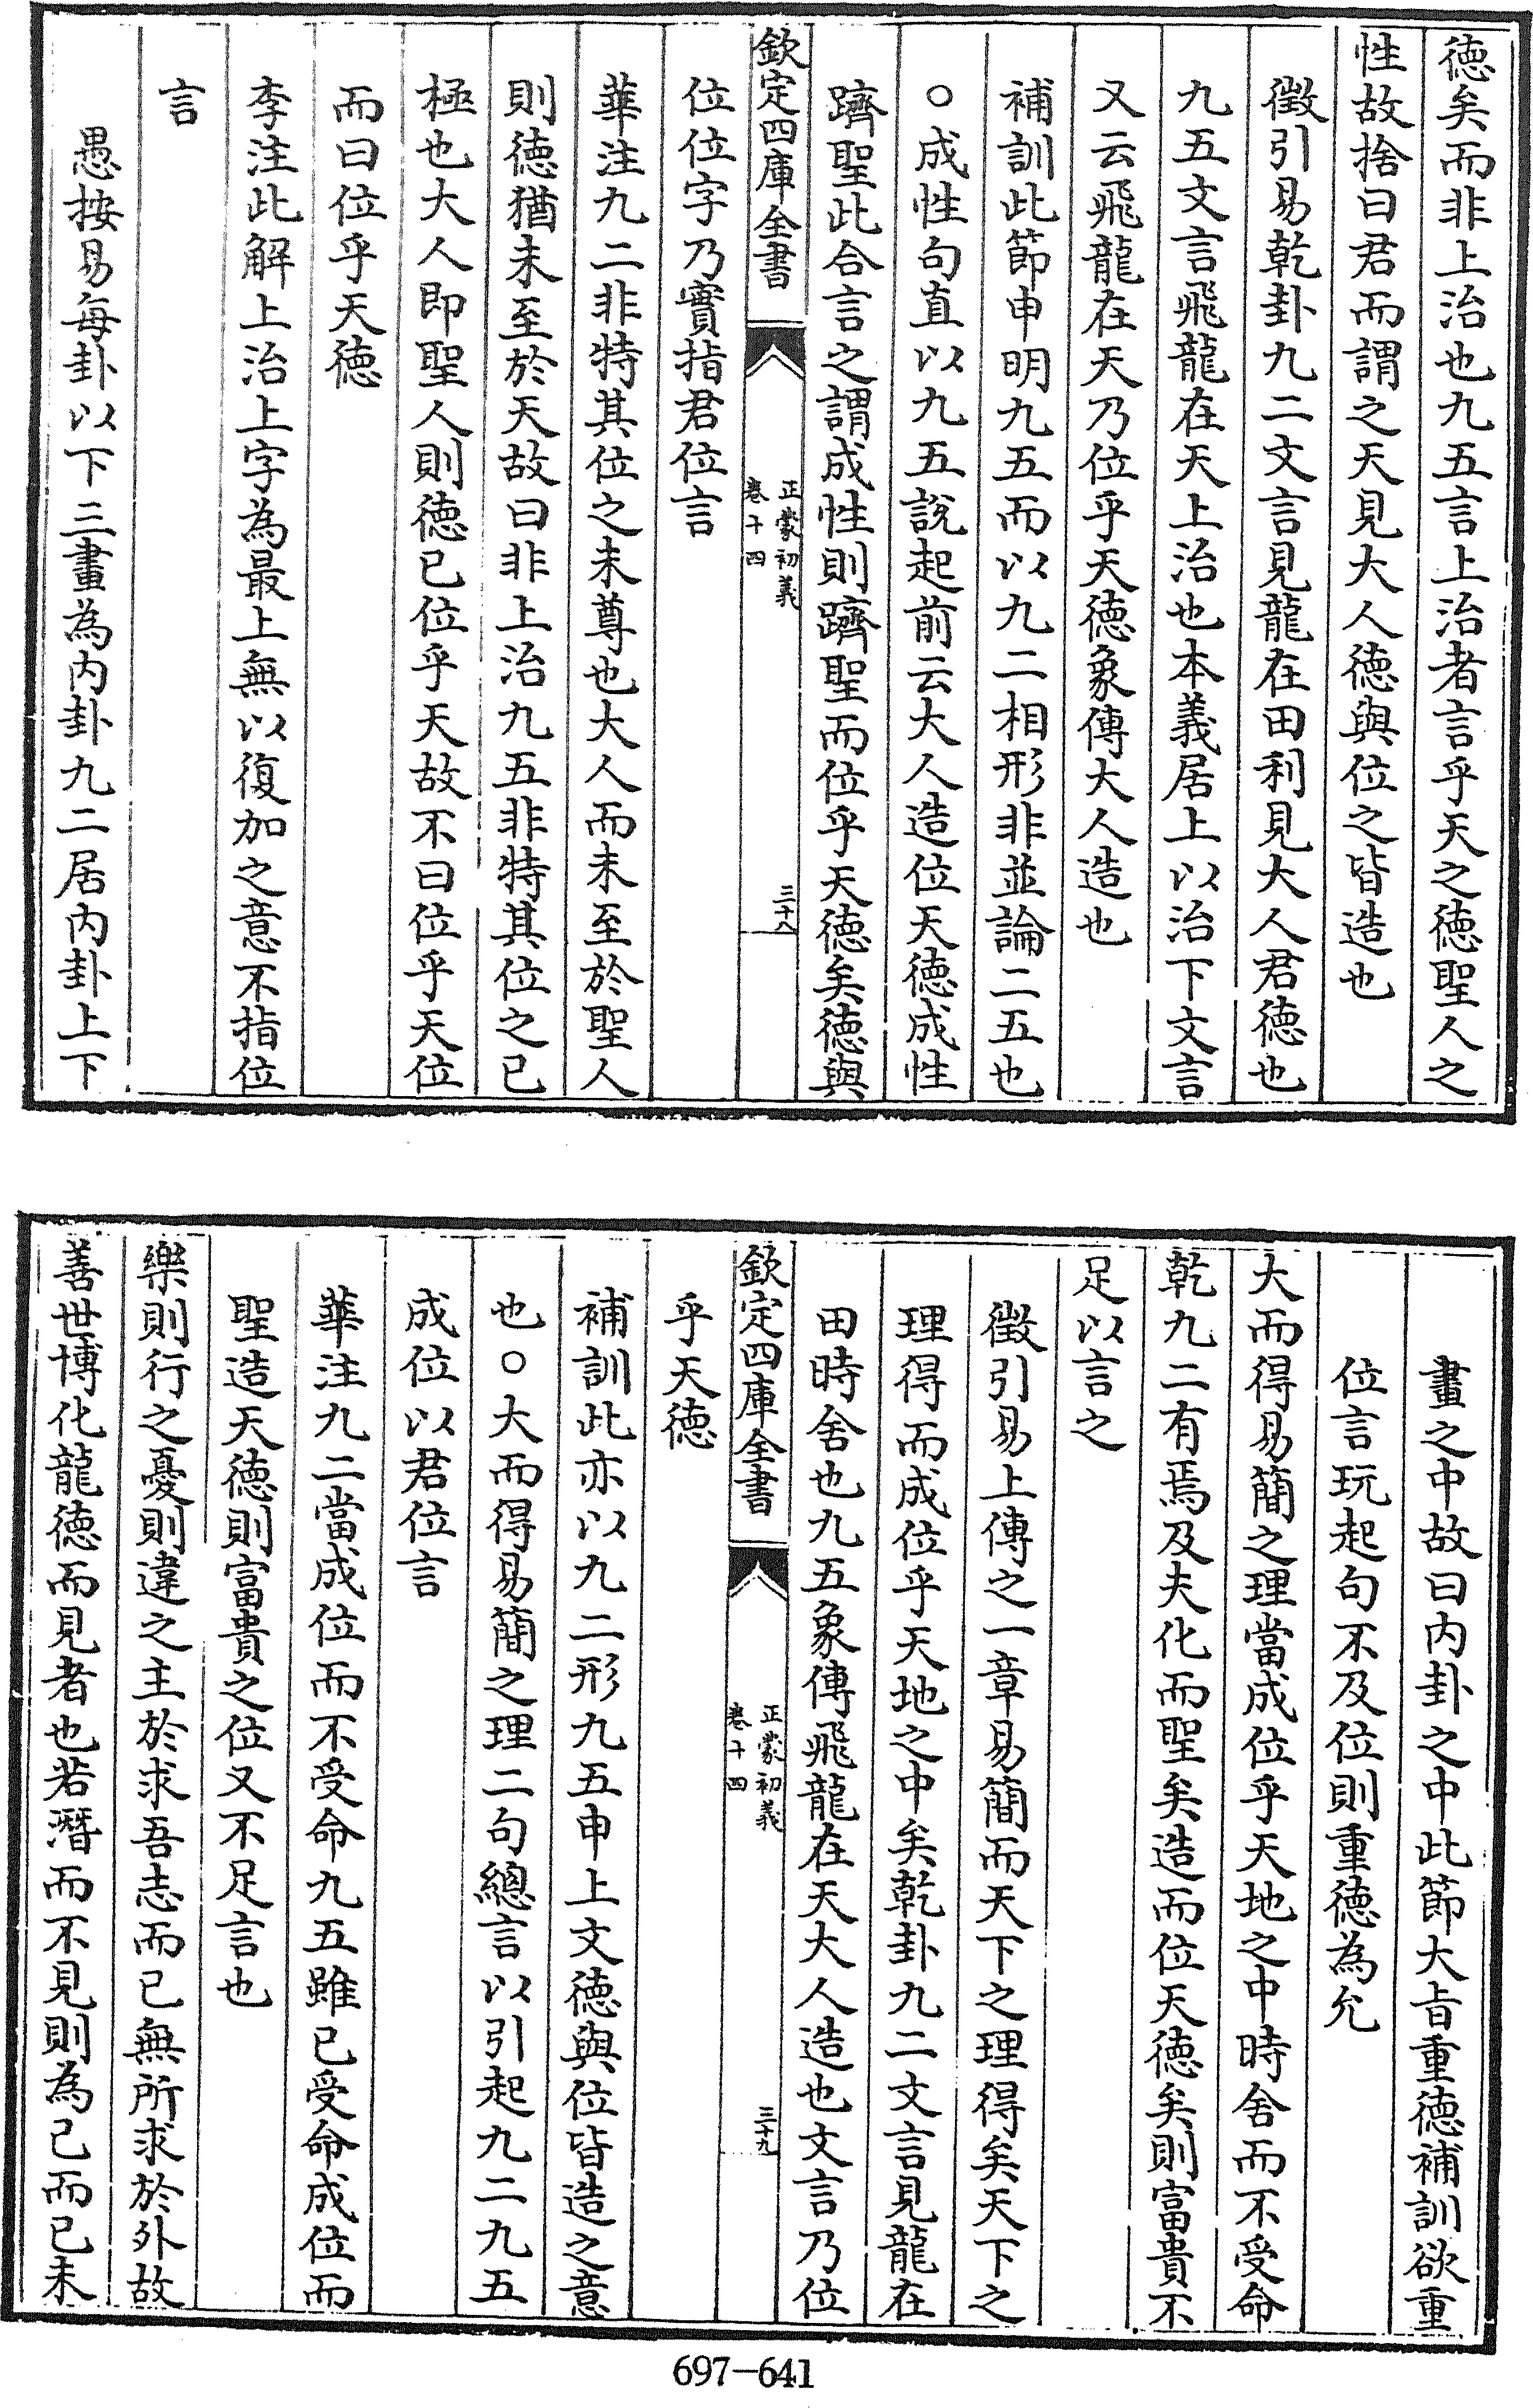 德矣而非上治也九五言上治者言乎天之德聖人之
性故捨曰君而謂之天見大人德與位之皆造也
徵引易乾卦九二文言見龍在田利見大人君德也
九五文言飛龍在天上治也本義居上以治下文言
又云飛龍在天乃位乎天德象傳大人造也
補訓此節申明九五而以九二相形非並論二五也
○成性句直以九五說起前云大人造位天德成性
躋聖此合言之謂成性則躋聖而位乎天德矣德與
欽定四庫全書
正蒙初義
卷十四
三十八
位位字乃實指君位言
華注九二非特其位之未尊也大人而未至於聖人
則德猶未至於天故曰非上治九五非特其位之已
極也大人即聖人則德已位乎天故不曰位乎天位
而曰位乎天德
李注此解上治上字為最上無以復加之意不指位
言
愚按易每卦以下三畫為内卦九二居内卦上下
畫之中故曰内卦之中此節大旨重德補訓欲重
位言玩起句不及位則重德為允
大而得易簡之理當成位乎天地之中時舍而不受命
乾九二有焉及夫化而聖矣造而位天德矣則富貴不
足以言之
徵引易上傳之一章易簡而天下之理得矣天下之
理得而成位乎天地之中矣乾卦九二文言見龍在
田時舍也九五象傳飛龍在天大人造也文言乃位
欽定四庫全書
正蒙初義
卷十四
三十九
乎天德
補訓此亦以九二形九五申上文德與位皆造之意
也○大而得易簡之理二句總言以引起九二九五
成位以君位言
華注九二當成位而不受命九五雖已受命成位而
聖造天德則富貴之位又不足言也
樂則行之憂則違之主於求吾志而已無所求於外故
善世博化龍德而見者也若潛而不見則為己而已未
697-641